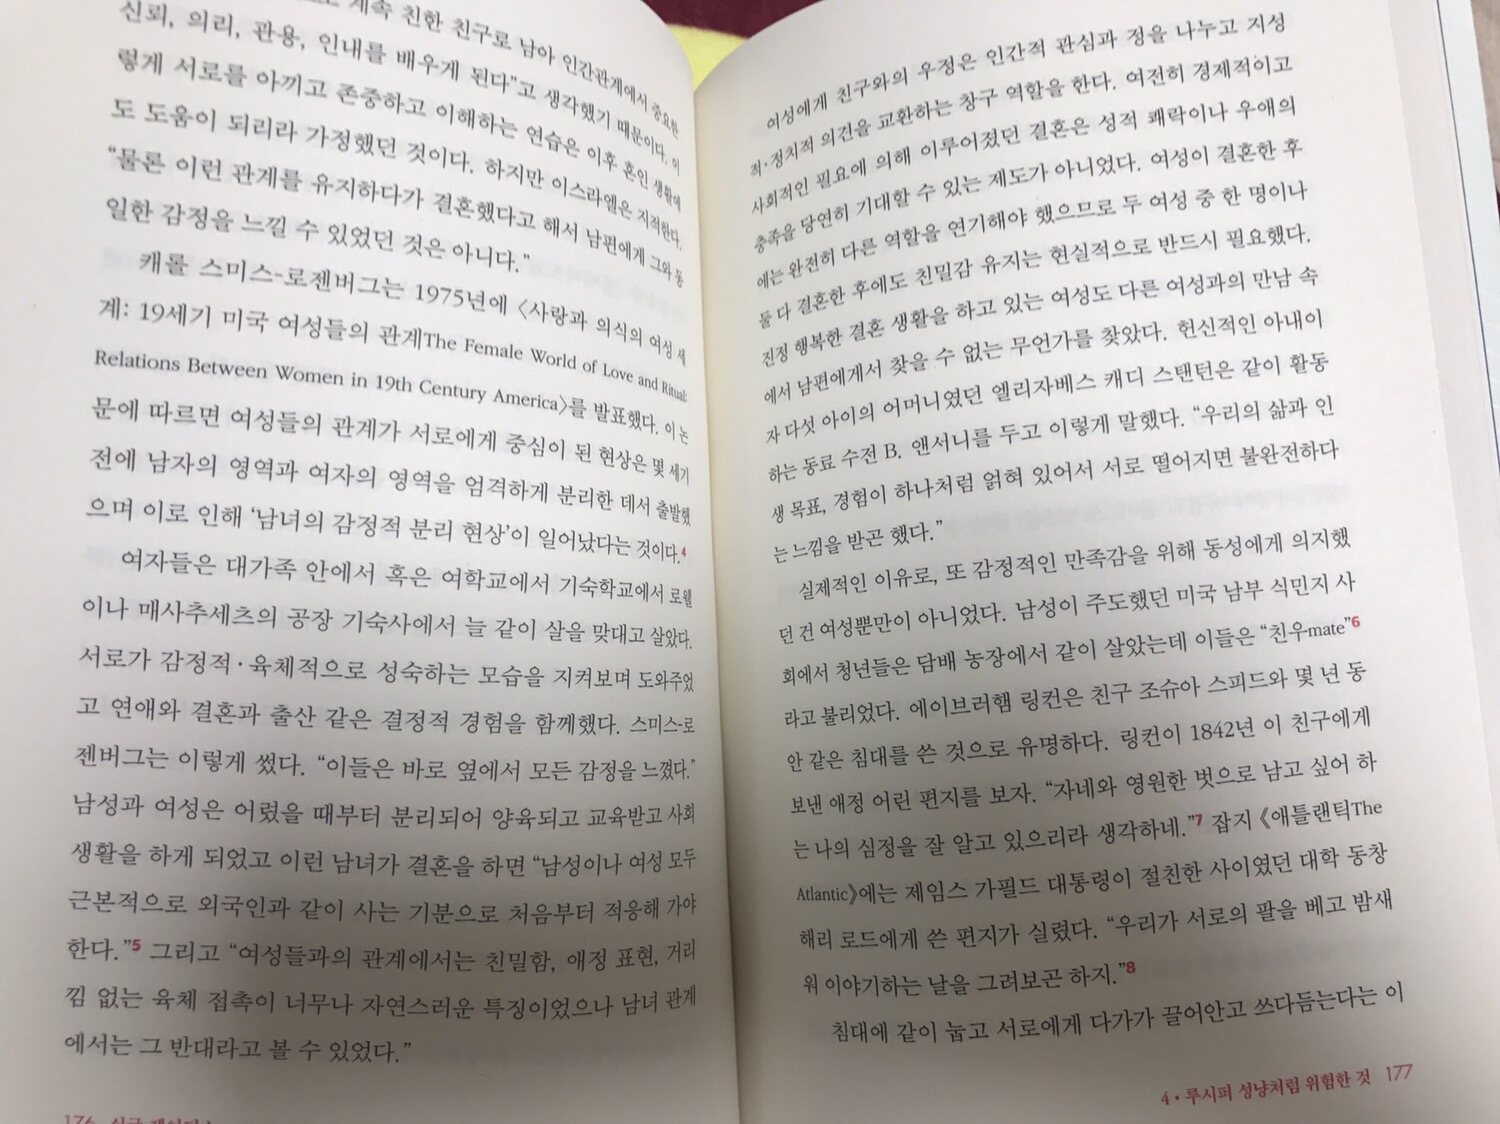 계속 친한 친구로 남아 인간관계에서 중요한
신뢰, 의리, 관용, 인내를 배우게 된다”고 생각했기 때문이다. 이
렇게 서로를 아끼고 존중하고 이해하는 연습은 이후 혼인 생활에
도 도움이 되리라 가정했던 것이다. 하지만 이스라엘은 지적한다.
“물론 이런 관계를 유지하다가 결혼했다고 해서 남편에게 그와 동
일한 감정을 느낄 수 있었던 것은 아니다.”
캐롤 스미스-로젠버그는 1975년에 〈사랑과 의식의 여성 세
계: 19세기 미국 여성들의 관계The Female World of Love and Ritual:
Relations Between Women in 19th Century America〉를 발표했다. 이 논
문에 따르면 여성들의 관계가 서로에게 중심이 된 현상은 몇 세기
전에 남자의 영역과 여자의 영역을 엄격하게 분리한 데서 출발했
으며 이로 인해 ‘남녀의 감정적 분리 현상’이 일어났다는 것이다.4
여자들은 대가족 안에서 혹은 여학교에서 기숙학교에서 로웰
이나 매사추세츠의 공장 기숙사에서 늘 같이 살을 맞대고 살았다.
서로가 감정적·육체적으로 성숙하는 모습을 지켜보며 도와주었
고 연애와 결혼과 출산 같은 결정적 경험을 함께했다. 스미스-로
젠버그는 이렇게 썼다. “이들은 바로 옆에서 모든 감정을 느꼈다.”
남성과 여성은 어렸을 때부터 분리되어 양육되고 교육받고 사회
생활을 하게 되었고 이런 남녀가 결혼을 하면 “남성이나 여성 모두
근본적으로 외국인과 같이 사는 기분으로 처음부터 적응해 가야
한다.”5 그리고 “여성들과의 관계에서는 친밀함, 애정 표현, 거리
낌 없는 육체 접촉이 너무나 자연스러운 특징이었으나 남녀 관계
에서는 그 반대라고 볼 수 있었다.”
176
여성에게 친구와의 우정은 인간적 관심과 정을 나누고 지성
적·정치적 의견을 교환하는 창구 역할을 한다. 여전히 경제적이고
사회적인 필요에 의해 이루어졌던 결혼은 성적 쾌락이나 우애의
충족을 당연히 기대할 수 있는 제도가 아니었다. 여성이 결혼한 후
에는 완전히 다른 역할을 연기해야 했으므로 두 여성 중 한 명이나
둘 다 결혼한 후에도 친밀감 유지는 현실적으로 반드시 필요했다.
진정 행복한 결혼 생활을 하고 있는 여성도 다른 여성과의 만남 속
에서 남편에게서 찾을 수 없는 무언가를 찾았다. 헌신적인 아내이
자 다섯 아이의 어머니였던 엘리자베스 캐디 스탠턴은 같이 활동
하는 동료 수전 B. 앤서니를 두고 이렇게 말했다. “우리의 삶과 인
생 목표, 경험이 하나처럼 얽혀 있어서 서로 떨어지면 불완전하다
는 느낌을 받곤 했다.”
실제적인 이유로, 또 감정적인 만족감을 위해 동성에게 의지했
던 건 여성뿐만이 아니었다. 남성이 주도했던 미국 남부 식민지 사
회에서 청년들은 담배 농장에서 같이 살았는데 이들은 “친우mate”6
라고 불리었다. 에이브러햄 링컨은 친구 조슈아 스피드와 몇 년 동
안 같은 침대를 쓴 것으로 유명하다. 링컨이 1842년 이 친구에게
보낸 애정 어린 편지를 보자. “자네와 영원한 벗으로 남고 싶어 하
는 나의 심정을 잘 알고 있으리라 생각하네.”7 잡지 《애틀랜틱The
Atlantic》에는 제임스 가필드 대통령이 절친한 사이였던 대학 동창
해리 로드에게 쓴 편지가 실렸다. “우리가 서로의 팔을 베고 밤새
워 이야기하는 날을 그려보곤 하지.”8
침대에 같이 눕고 서로에게 다가가 끌어안고 쓰다듬는다는 이
4 · 루시퍼 성냥처럼 위험한 것 177